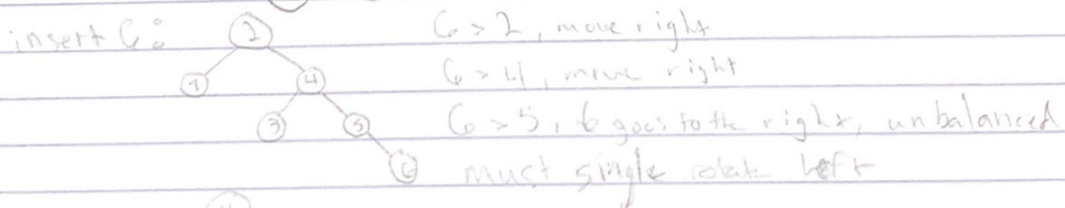 insert 6: 2 6 > 2, move right
1 4 6 > 4, move right
3 5 6 > 5, 6 goes to the right, unbalanced
6 must single rotate left